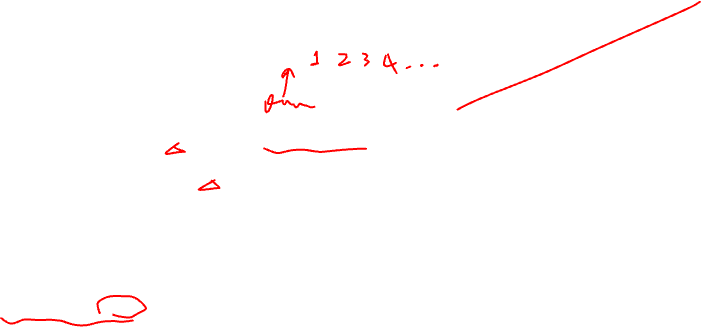 1 2 3 4...